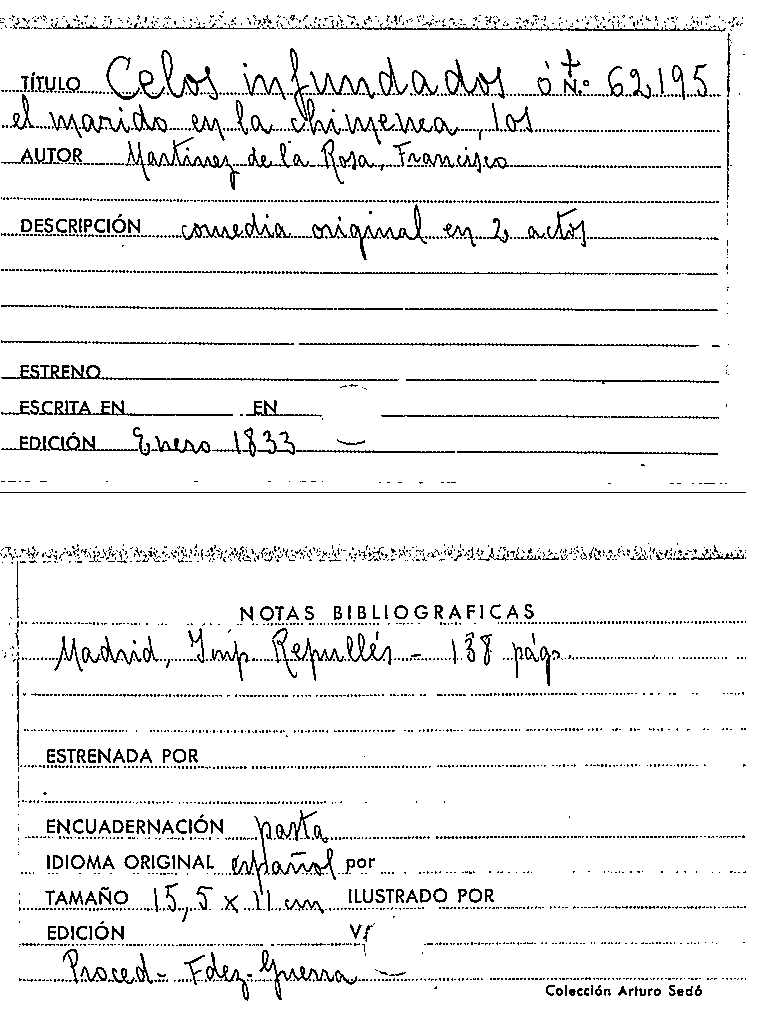 TÍTULO Celos infundados ó N.º 62195
el marido en la chimenea, los
AUTOR Martinez de la Rosa, Francisco
DESCRIPCIÓN comedia original en 2 actos
ESTRENO
ESCRITA EN EN
EDICIÓN Enero 1833
NOTAS BIBLIOGRAFICAS
Madrid, Imp Repullés - 138 págs.
ESTRENADA POR
ENCUADERNACIÓN pasta
IDIOMA ORIGINAL español por
TAMAÑO 15,5 x 11 cm ILUSTRADO POR
EDICIÓN
Proced- Fdez-Guerra
Colección Arturo Sedó